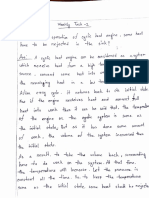 Weekly Test - 2
operation of cyclic heat engine, some heat
have to be rejected in the sink?
A cyclic heat engine can be considered as a system
which receives heat from a high
convert some heat into
the remaining heat in a
After every cycle, it returns back to its initial state.
the engine receives heat and convert
into work then it can be said that the temperature
of the engine or the cyclic system is same as
the initial state. But as it has done some amount
of work, the volume of the system is increased than
the initial state.
As a result to take the volume back, surrounding
some work on the system. At that time
the temperature will increase. Let the pressure is
constant at the time. So to have the temperature
same as the initial state, some heat should be rejected